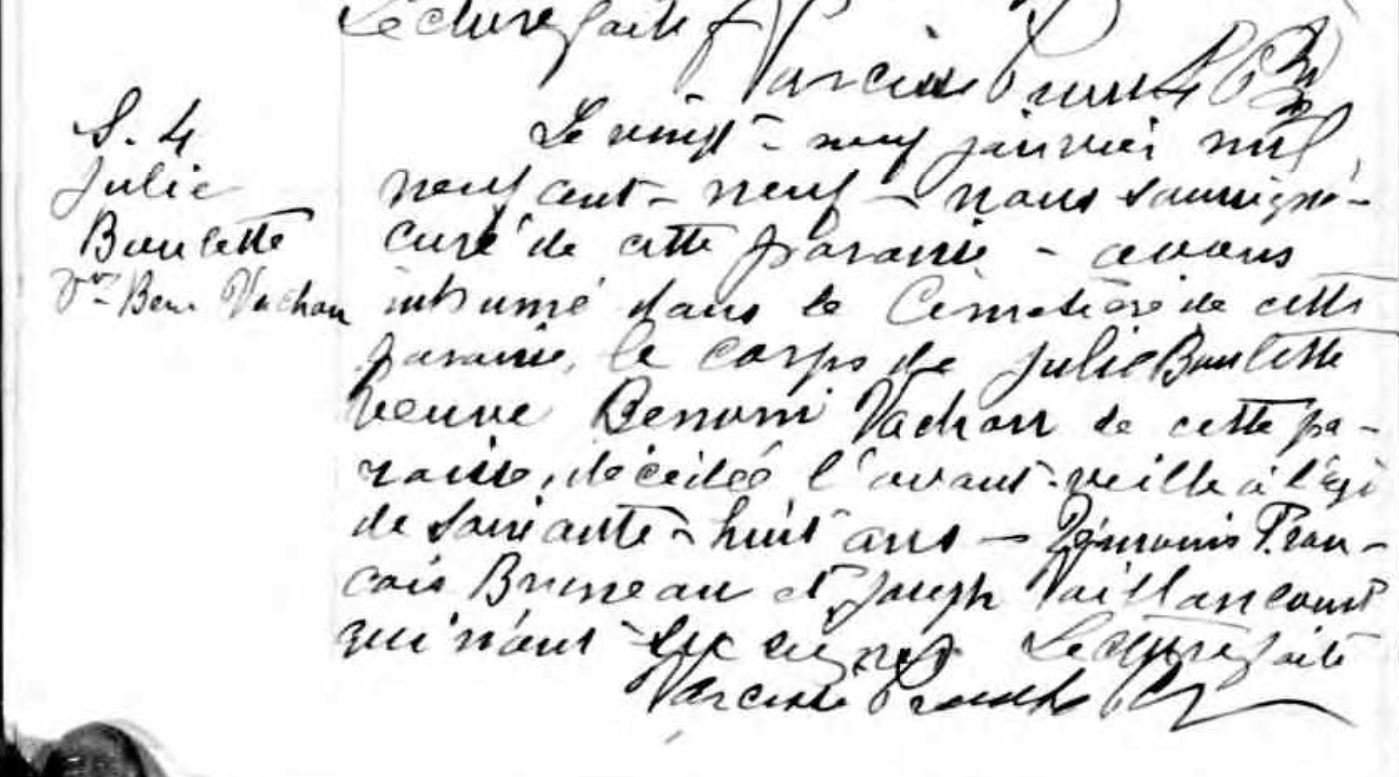 Lecture faite
Narcisse Proulx Ptre
S. 4
Julie
Boulette
Vve Ben. Vachon
Le vingt-neuf janvier mil
neuf cent-neuf - nous soussigné-
curé de cette paroisse - avons
inhumé dans le Cimetière de cette
paroisse, le corps de Julie Boulette
veuve Benoni Vachon de cette pa-
roisse, décédée l'avant-veille à l'âge
de soixante-huit ans - Témoins Fran-
çois Bruneau et Joseph Vaillancourt
qui n'ont su signer Lecture faite
Narcisse Proulx Ptre